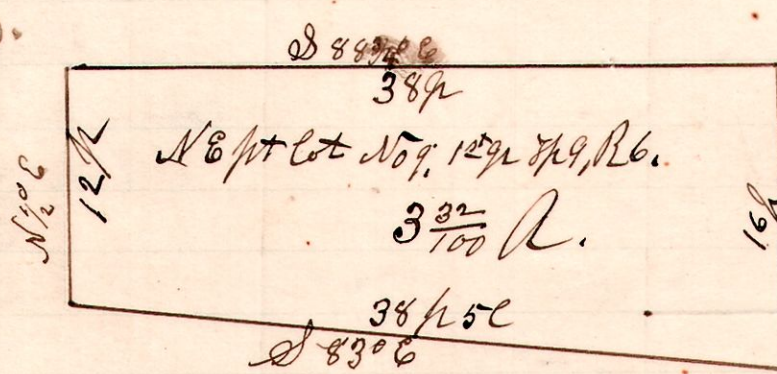 S 88 3/4° E
38p
N 1/2° E
12p
N E pt lot No 9, 1st qr Tp 9, R 6.
3 32/100 A.
16p
38p 5l
S 83° E